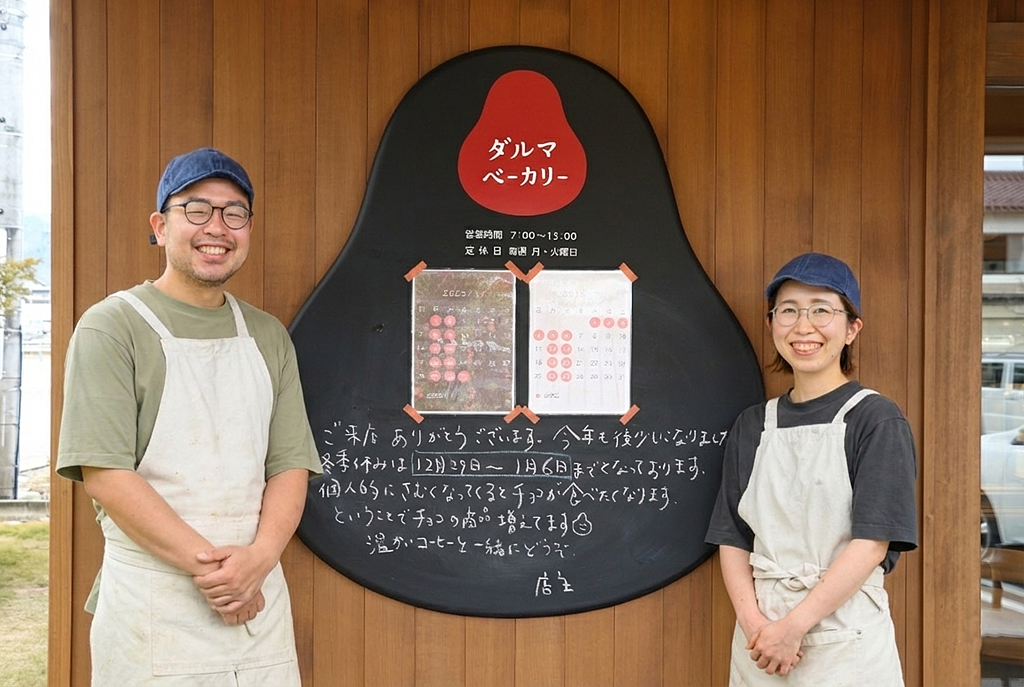 ダルマ
ベーカリー
営業時間 7:00〜15:00
定休日 毎週 月・火曜日
ご来店 ありがとうございます。今年も後少しになりました
冬季休みは 12月29日〜1月6日 までとなっております。
個人的にさむくなってくるとチョコが食べたくなります。
ということでチョコの商品 増えてます
温かいコーヒーと一緒にどうぞ
店主